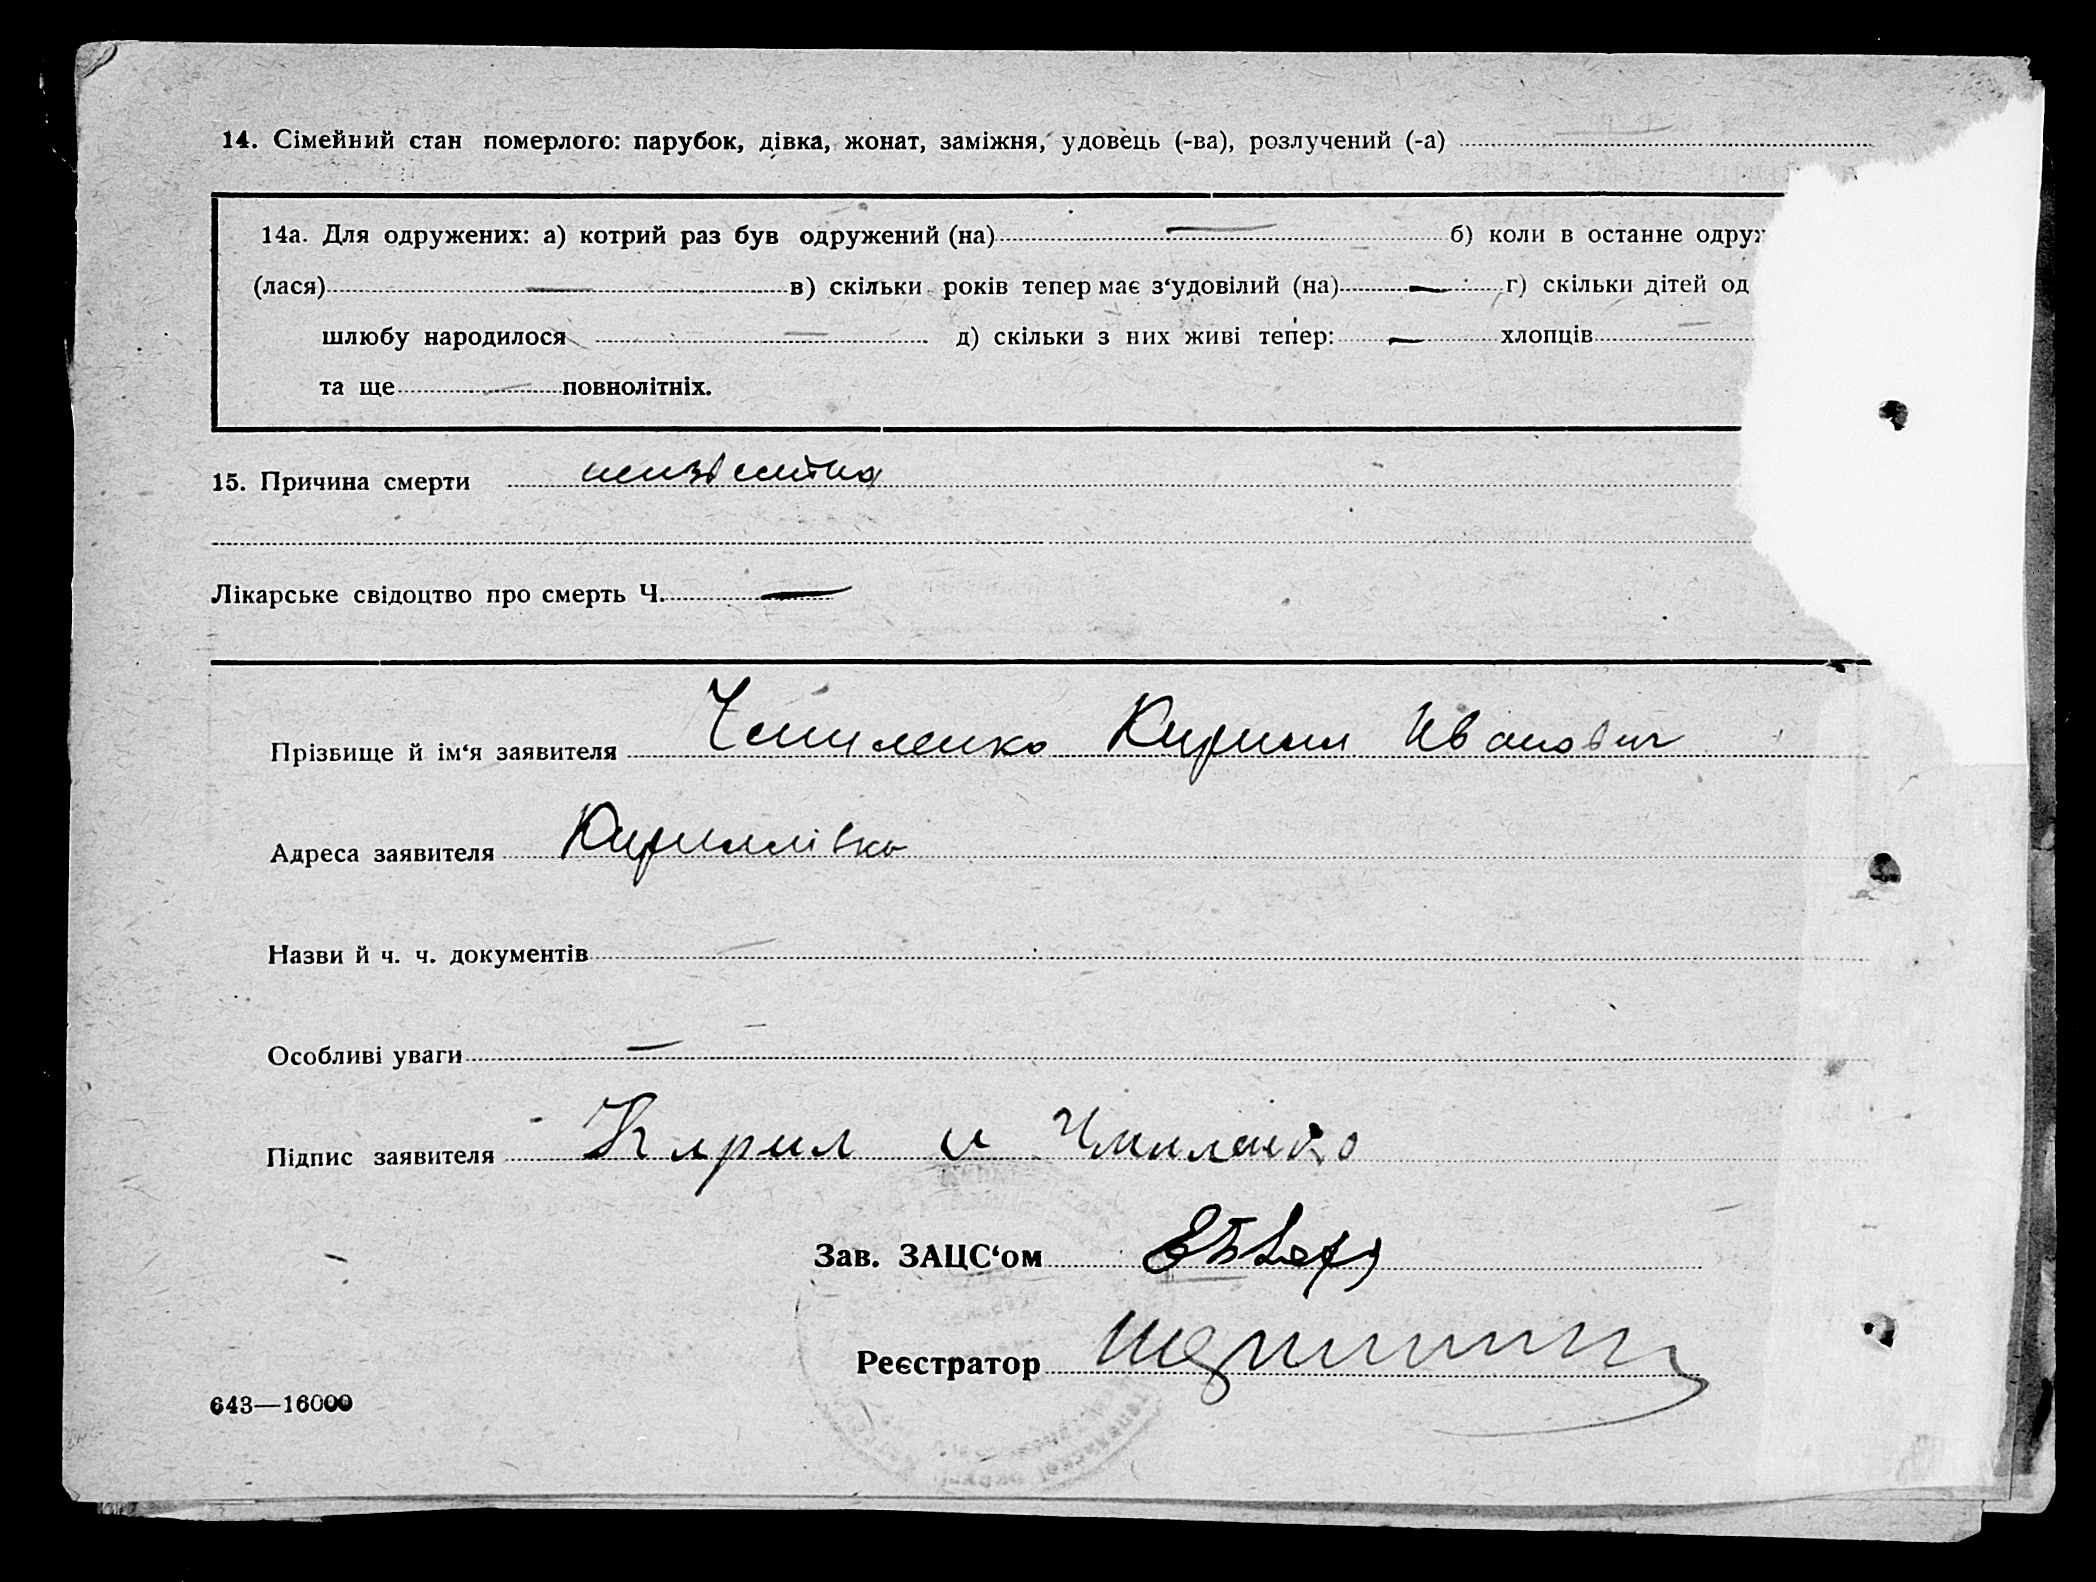 14. Сімейний стан померлого: парубок, дівка, жонат, заміжня, удовець (-ва), розлучений (-а)
14а. Для одружених: а) котрий раз був одружений (на) — б) коли в останне одруж
(лася) — в) скільки років тепер має з‘удовілий (на) — г) скільки дітей од
шлюбу народилося — д) скільки з них живі тепер: — хлопців —
та ще — повнолітніх.
15. Причина смерти невідомо
Лікарське свідоцтво про смерть Ч. —
Прізвище й ім‘я заявителя Кирилл Иванович
Адреса заявителя Кириллівка
Назви й ч. ч. документів —
Особливі уваги —
Підпис заявителя Кирил И Чмиленко
Зав. ЗАЦС‘ом
Реєстратор
643—16000